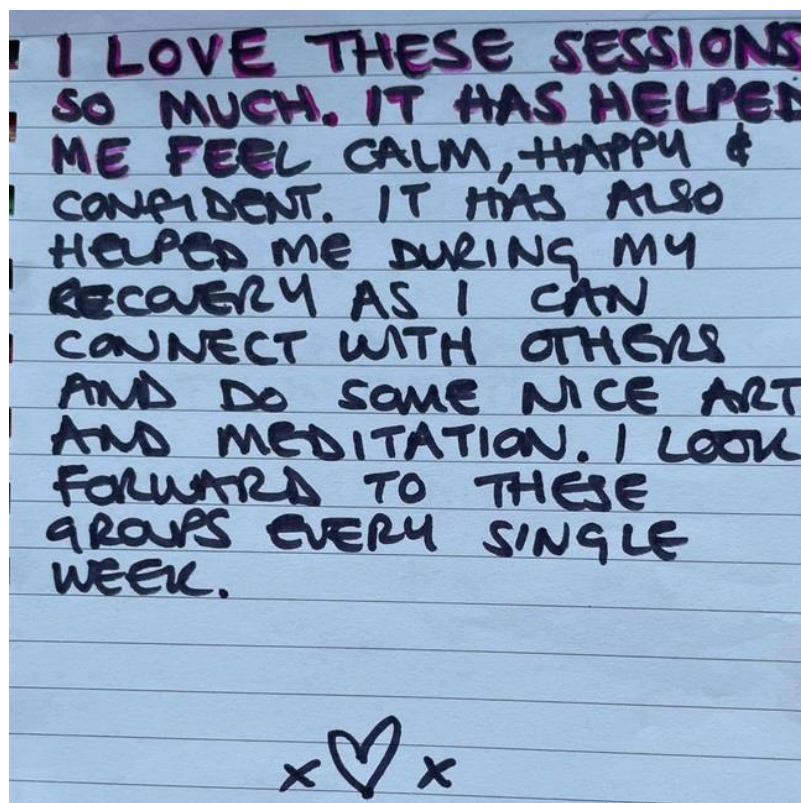 I LOVE THESE SESSIONS
SO MUCH. IT HAS HELPED
ME FEEL CALM, HAPPY &
CONFIDENT. IT HAS ALSO
HELPED ME DURING MY
RECOVERY AS I CAN
CONNECT WITH OTHERS
AND DO SOME NICE ART
AND MEDITATION. I LOOK
FORWARD TO THESE
GROUPS EVERY SINGLE
WEEK.
x♡x